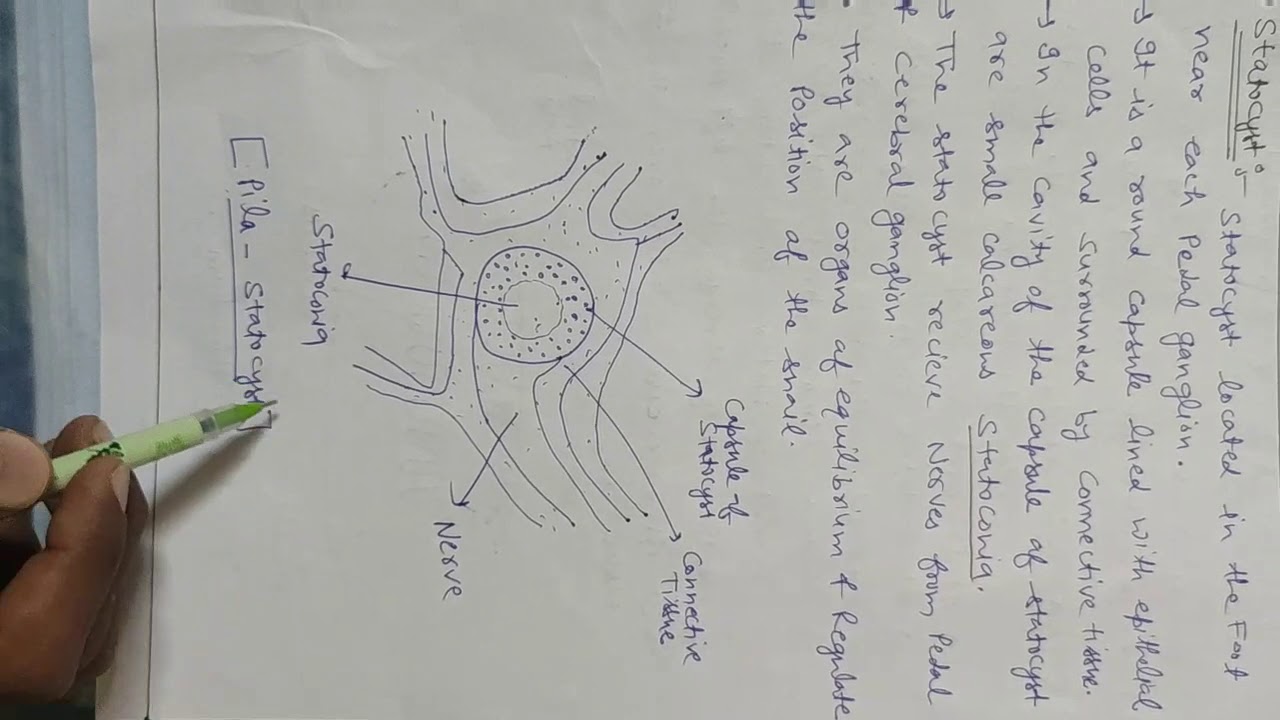 Statocyst :- Statocyst located in the Foot
near each Pedal ganglion.
→ It is a round capsule lined with epithelial
cells and surrounded by connective tissue.
→ In the cavity of the capsule of statocyst
are small calcareous Statoconia.
→ The statocyst recieve Nerves from Pedal
& cerebral ganglion.
- They are organs of equilibrium & Regulate
the Position of the snail.
Capsule of
Statocyst
Connective
Tissue
Nerve
Statoconia
[Pila - Statocyst]